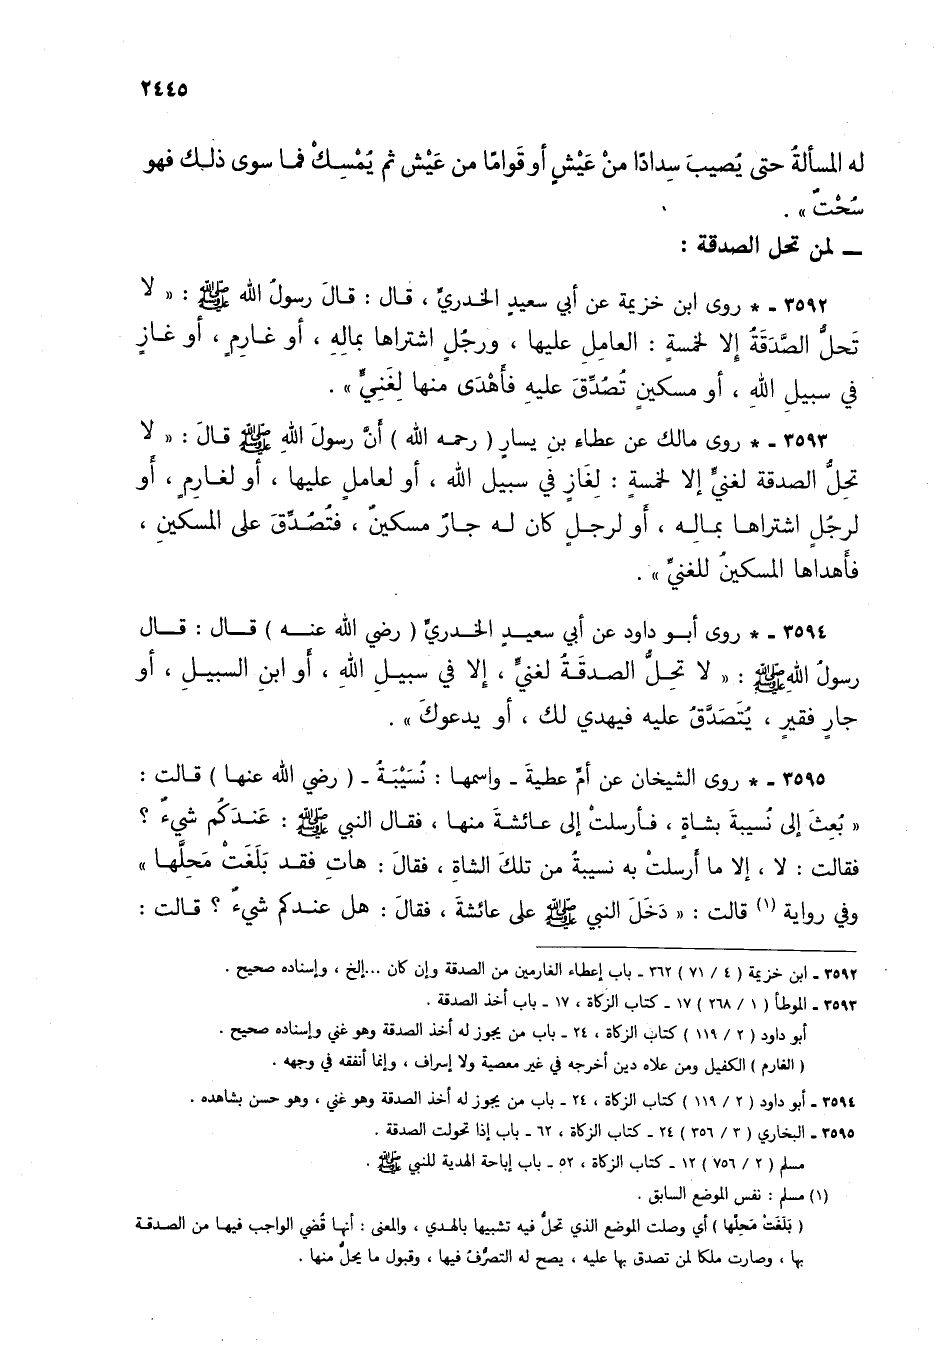 ٢٤٤٥
له المسألةُ حتى يُصيبَ سِدادًا منْ عَيْشٍ أو قَوامًا من عَيْش ثم يُمْسِكْ فما سوى ذلك فهو
سُحْتٌ » .
ــ لمن تحل الصدقة :
٣٥٩٢ ـ * روى ابن خزيمة عن أبي سعيدٍ الخدريِّ ، قال : قالَ رسولُ الله ﷺ : « لا
تَحلُّ الصَّدَقَةُ إلا لخمسةٍ : العاملِ عليها ، ورجُلٍ اشتراها بمالِهِ ، أو غارِمٍ ، أو غازٍ
في سبيلِ اللهِ ، أو مسكينٍ تُصُدِّقَ عليهِ فأَهْدَى منها لِغَنِيٍّ » .
٣٥٩٣ ـ * روى مالك عن عطاء بنِ يسارٍ ( رحمه الله ) أَنَّ رسولَ اللهِ ﷺ قالَ : « لا
تحلُّ الصدقة لغنيٍّ إلا لخمسةٍ : لِغَازٍ في سبيلِ الله ، أو لعاملٍ عليها ، أو لغارِمٍ ، أو
لرجُلٍ اشتراها بمالِه ، أو لرجلٍ كان له جارٌ مسكينٌ ، فتُصُدِّقَ على المسكينِ ،
فأَهداها المسكينُ للغنيِّ » .
٣٥٩٤ ـ * روى أبو داود عن أبي سعيدٍ الخدريِّ ( رضي الله عنه ) قال : قال
رسولُ اللهِ ﷺ : « لا تحلُّ الصدقَةُ لغنيٍّ ، إلا في سبيلِ اللهِ ، أو ابنِ السبيلِ ، أو
جارٍ فقيرٍ ، يُتَصَدَّقُ عليه فيهدي لك ، أو يدعوكَ » .
٣٥٩٥ ـ * روى الشيخان عن أمِّ عطيةَ ـ واسمها : نُسَيْبَةُ ـ ( رضي الله عنها ) قالت :
« بُعثَ إلى نُسيبةَ بشاةٍ ، فأرسلتْ إلى عائشةَ منها ، فقال النبي ﷺ : عَندَكُم شيءٌ ؟
فقالت : لا ، إلا ما أرسلتْ به نسيبةُ من تلكَ الشاةِ ، فقالَ : هاتِ فقد بَلَغَتْ مَحِلَّها »
وفي رواية (١) قالت : « دَخَلَ النبي ﷺ على عائشةَ ، فقالَ : هل عندكم شيءٌ ؟ قالت :
٣٥٩٢ ـ ابن خزيمة ( ٤ / ٧١ ) ٣٦٢ ـ باب إعطاء الغارمين من الصدقة وإن كان ...إلخ ، وإسناده صحيح .
٣٥٩٣ ـ الموطأ ( ١ / ٢٦٨ ) ١٧ ـ كتاب الزكاة ، ١٧ ـ باب أخذ الصدقة .
أبو داود ( ٢ / ١١٩ ) كتاب الزكاة ، ٢٤ ـ باب من يجوز له أخذ الصدقة وهو غني وإسناده صحيح .
( الغارم ) الكفيل ومن علاه دين أخرجه في غير معصية ولا إسراف ، وإنما أنفقه في وجهه .
٣٥٩٤ ـ أبو داود ( ٢ / ١١٩ ) كتاب الزكاة ، ٢٤ ـ باب من يجوز له أخذ الصدقة وهو غني ، وهو حسن بشاهده .
٣٥٩٥ ـ البخاري ( ٣ / ٣٥٦ ) ٢٤ ـ كتاب الزكاة ، ٦٢ ـ باب إذا تحولت الصدقة .
مسلم ( ٢ / ٧٥٦ ) ١٢ ـ كتاب الزكاة ، ٥٢ ـ باب إباحة الهدية للنبي ﷺ .
(١) مسلم : نفس الموضع السابق .
( بَلَغَتْ مَحِلّها ) أي وصلت الموضع الذي تحلُّ فيه تشبيها بالهدي ، والمعنى : أنها قُضي الواجب فيها من الصدقة
بها ، وصارت ملكا لمن تصدق بها عليه ، يصح له التصرُّف فيها ، وقبول ما يحلُّ منها .